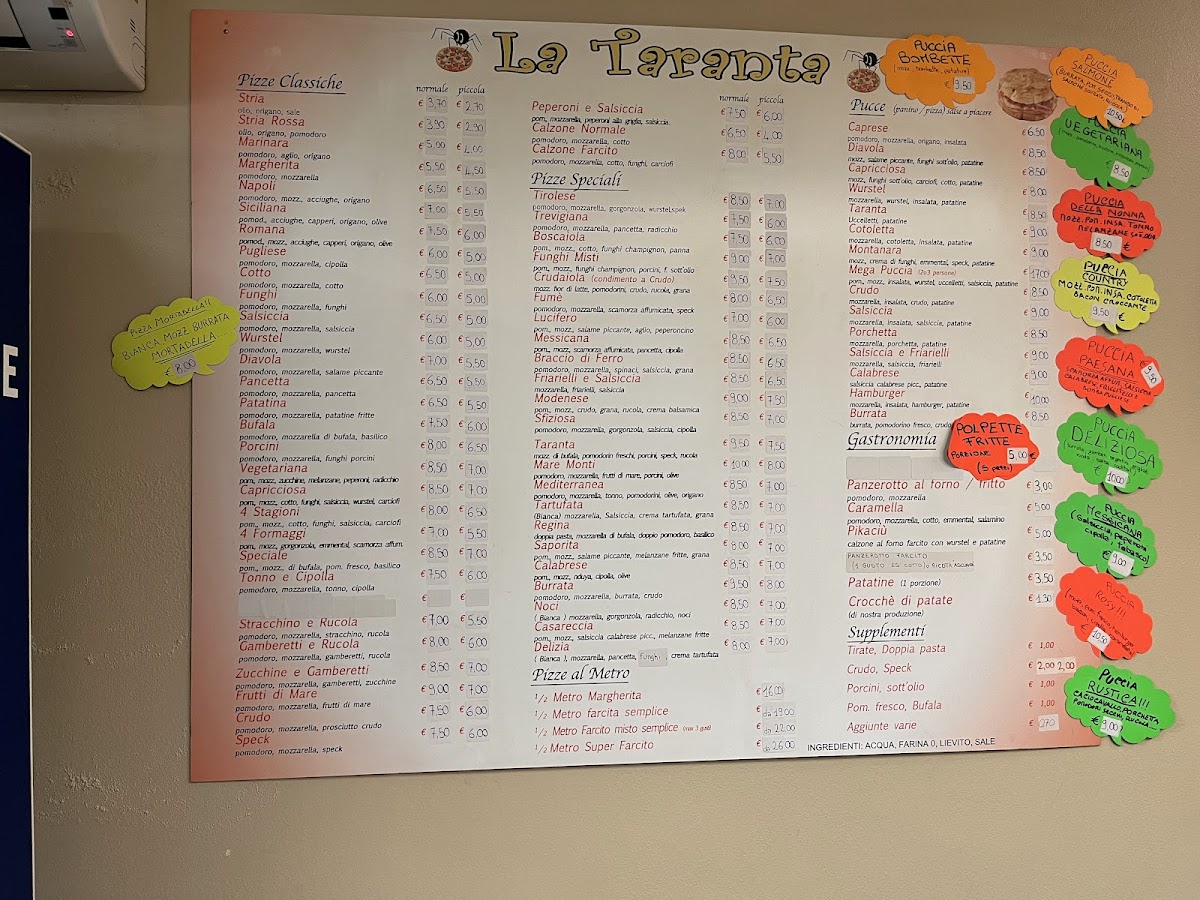 La Taranta
Pizze Classiche
normale piccola
Stria € 3,70 € 2,70
olio, origano, sale
Stria Rossa € 3,90 € 2,90
olio, origano, pomodoro
Marinara € 5,00 € 4,00
pomodoro, aglio, origano
Margherita € 5,50 € 4,50
pomodoro, mozzarella
Napoli € 6,50 € 5,50
pomodoro, mozz., acciughe, origano
Siciliana € 7,00 € 5,50
pomod., acciughe, capperi, origano, olive
Romana € 7,50 € 6,00
pomod., mozz, acciughe, capperi, origano, olive
Pugliese € 6,00 € 5,00
pomodoro, mozzarella, cipolla
Cotto € 6,50 € 5,00
pomodoro, mozzarella, cotto
Funghi € 6,00 € 5,00
pomodoro, mozzarella, funghi
Salsiccia € 6,50 € 5,00
pomodoro, mozzarella, salsiccia
Wurstel € 6,00 € 5,00
pomodoro, mozzarella, wurstel
Diavola € 7,00 € 5,50
pomodoro, mozzarella, salame piccante
Pancetta € 6,50 € 5,50
pomodoro, mozzarella, pancetta
Patatina € 6,50 € 5,50
pomodoro, mozzarella, patatine fritte
Bufala € 7,50 € 6,00
pomodoro, mozzarella di bufala, basilico
Porcini € 8,00 € 6,50
pomodoro, mozzarella, funghi porcini
Vegetariana € 8,50 € 7,00
pom., mozz, zucchine, melanzane, peperoni, radicchio
Capricciosa € 8,50 € 7,00
pom., mozz, cotto, funghi, salsiccia, wurstel, carciofi
4 Stagioni € 8,00 € 6,50
pom., mozz., cotto, funghi, salsiccia, carciofi
4 Formaggi € 7,00 € 5,50
pom., mozz, gorgonzola, emmental, scamorza affum.
Speciale € 8,50 € 7,00
pom., mozz., di bufala, pom. fresco, basilico
Tonno e Cipolla € 7,50 € 6,00
pomodoro, mozzarella, tonno, cipolla
€ €
Stracchino e Rucola € 7,00 € 5,50
pomodoro, mozzarella, stracchino, rucola
Gamberetti e Rucola € 8,00 € 6,00
pomodoro, mozzarella, gamberetti, rucola
Zucchine e Gamberetti € 8,50 € 7,00
pomodoro, mozzarella, gamberetti, zucchine
Frutti di Mare € 9,00 € 7,00
pomodoro, mozzarella, frutti di mare
Crudo € 7,50 € 6,00
pomodoro, mozzarella, prosciutto crudo
Speck € 7,50 € 6,00
pomodoro, mozzarella, speck
normale piccola
Peperoni e Salsiccia € 7,50 € 6,00
pom., mozzarella, peperoni alla griglia, salsiccia.
Calzone Normale € 6,50 € 4,00
pomodoro, mozzarella, cotto
Calzone Farcito € 8,00 € 5,50
pomodoro, mozzarella, cotto, funghi, carciofi
Pizze Speciali
Tirolese € 8,50 € 7,00
pomodoro, mozzarella, gorgonzola, wurstel,spek
Trevigiana € 7,50 € 6,00
pomodoro, mozzarella, pancetta, radicchio
Boscaiola € 7,50 € 6,00
pom., mozz., cotto, funghi champignon, panna
Funghi Misti € 9,00 € 7,00
pom., mozz., funghi champignon, porcini, f. sott'olio
Crudaiola (condimento a Crudo) € 9,50 € 7,00
mozz. fior di latte, pomodorini, crudo, rucola, grana
Fumè € 8,00 € 6,50
pomodoro, mozzarella, scamorza affumicata, speck
Lucifero € 7,00 € 6,00
pom., mozz, salame piccante, aglio, peperoncino
Messicana € 8,50 € 6,50
pom., mozz, scamorza affumicata, pancetta, cipolla
Braccio di Ferro € 8,50 € 6,50
pomodoro, mozzarella, spinaci, salsiccia, grana
Friarielli e Salsiccia € 8,50 € 6,50
mozzarella, friarielli, salsiccia
Modenese € 9,00 € 7,50
pom., mozz, crudo, grana, rucola, crema balsamica
Sfiziosa € 8,50 € 7,00
pomodoro, mozzarella, gorgonzola, salsiccia, cipolla
Taranta € 9,50 € 7,50
mozz. di bufala, pomodorin freschi, porcini, speck, rucola
Mare Monti € 10,00 € 8,00
pomodoro, mozzarella, frutti di mare, porcini, olive
Mediterranea € 8,50 € 7,00
pomodoro, mozzarella, tonno, pomodorini, olive, origano
Tartufata € 8,50 € 7,00
(Bianca) mozzarella, Salsiccia, crema tartufata, grana
Regina € 8,50 € 7,00
doppia pasta, mozzarella di bufala, doppio pomodoro, basilico
Saporita € 8,00 € 7,00
pom., mozz, salame piccante, melanzane fritte, grana
Calabrese € 8,50 € 7,00
pom., mozz, nduya, cipolla, olive
Burrata € 9,50 € 8,00
pomodoro, mozzarella, burrata, crudo
Noci € 8,50 € 7,00
( Bianca ) mozzarella, gorgonzola, radicchio, noci
Casareccia € 8,50 € 7,00
pom., mozz, salsiccia calabrese picc., melanzane fritte
Delizia € 8,00 € 7,00
( Bianca ), mozzarella, pancetta, funghi, crema tartufata
Pizze al Metro
1/2 Metro Margherita € 16,00
1/2 Metro farcita semplice € da 19.00
1/2 Metro Farcito misto semplice (max 3 gusti) € da 22.00
1/2 Metro Super Farcito € da 26.00
Pucce (panino / pizza) salse a piacere
Caprese € 6.50
pomodoro, mozzarella, origano, insalata
Diavola € 8,50
mozz, salame piccante, funghi sott'olio, patatine
Capricciosa € 8,50
mozz, funghi sott'olio, carciofi, cotto, patatine
Wurstel € 8,00
mozzarella, wurstel, insalata, patatine
Taranta € 8,50
Uccelletti, patatine
Cotoletta € 9,00
mozzarella, cotoletta, insalata, patatine
Montanara € 9,00
mozz, crema di funghi, emmental, speck, patatine
Mega Puccia (2o3 persone) € 17,00
pom., mozz, insalata, wurstel, uccelletti, salsiccia, patatine
Crudo € 8,50
mozzarella, insalata, crudo, patatine
Salsiccia € 9,00
mozzarella, insalata, salsiccia, patatine
Porchetta € 8,50
mozzarella, porchetta, patatine
Salsiccia e Friarielli € 9,00
mozzarella, salsiccia, friarielli
Calabrese € 9,00
salsiccia calabrese picc., patatine
Hamburger € 10,00
mozzarella, insalata, hamburger, patatine
Burrata € 8,50
burrata, pomodorino fresco, crudo,
Gastronomia
Panzerotto al forno / fritto € 3,00
pomodoro, mozzarella
Caramella € 5,00
pomodoro, mozzarella, cotto, emmental, salamino
Pikaciù € 5,00
calzone al forno farcito con wurstel e patatine
PANZEROTTO FARCITO € 3,50
(1 GUSTO ES COTTO) o RICOTA ASCUANTE
Patatine (1 porzione) € 3,50
Crocchè di patate € 1,30
(di nostra produzione)
Supplementi
Tirate, Doppia pasta € 1,00
Crudo, Speck € 2,00 2,00
Porcini, sott'olio € 1,00
Pom. fresco, Bufala € 1,00
Aggiunte varie € 0,70
INGREDIENTI: ACQUA, FARINA 0, LIEVITO, SALE
PIZZA MORTADELLA!!
BIANCA MOZZ BURRATA
MORTADELLA
€ 8,00
PUCCIA
BOMBETTE
(mozz, bombette, patatine)
€ 9.50
PUCCIA
SALMONE
10.50 €
PUCCIA
VEGETARIANA
€ 8.50
PUCCIA
DELLA NONNA
MOZZ. POM. INSA. TONNO
MELANZANE SOTT'OLIO
8.50 €
PUCCIA
COUNTRY
MOZZ. POM. INSA. COTOLETTA
BACON CROCCANTE
9.50 €
PUCCIA
PAESANA
€ 9,50
SCAMORZA AFFUM, SALSICCIA
POLPETTE
FRITTE
PORZIONE 5,00 €
(5 pezzi)
PUCCIA
DELIZIOSA
€ 10.00
PUCCIA
MESSICANA
(salsiccia, peperoni
cipolla, tabasco)
€ 9.00
PUCCIA
ROSY!!!
€ 10.50
PUCCIA
RUSTICA!!!
CACIOCAVALLO, PORCHETTA
POMODORI SECCHI, RUCOLA
€ 9,00
E